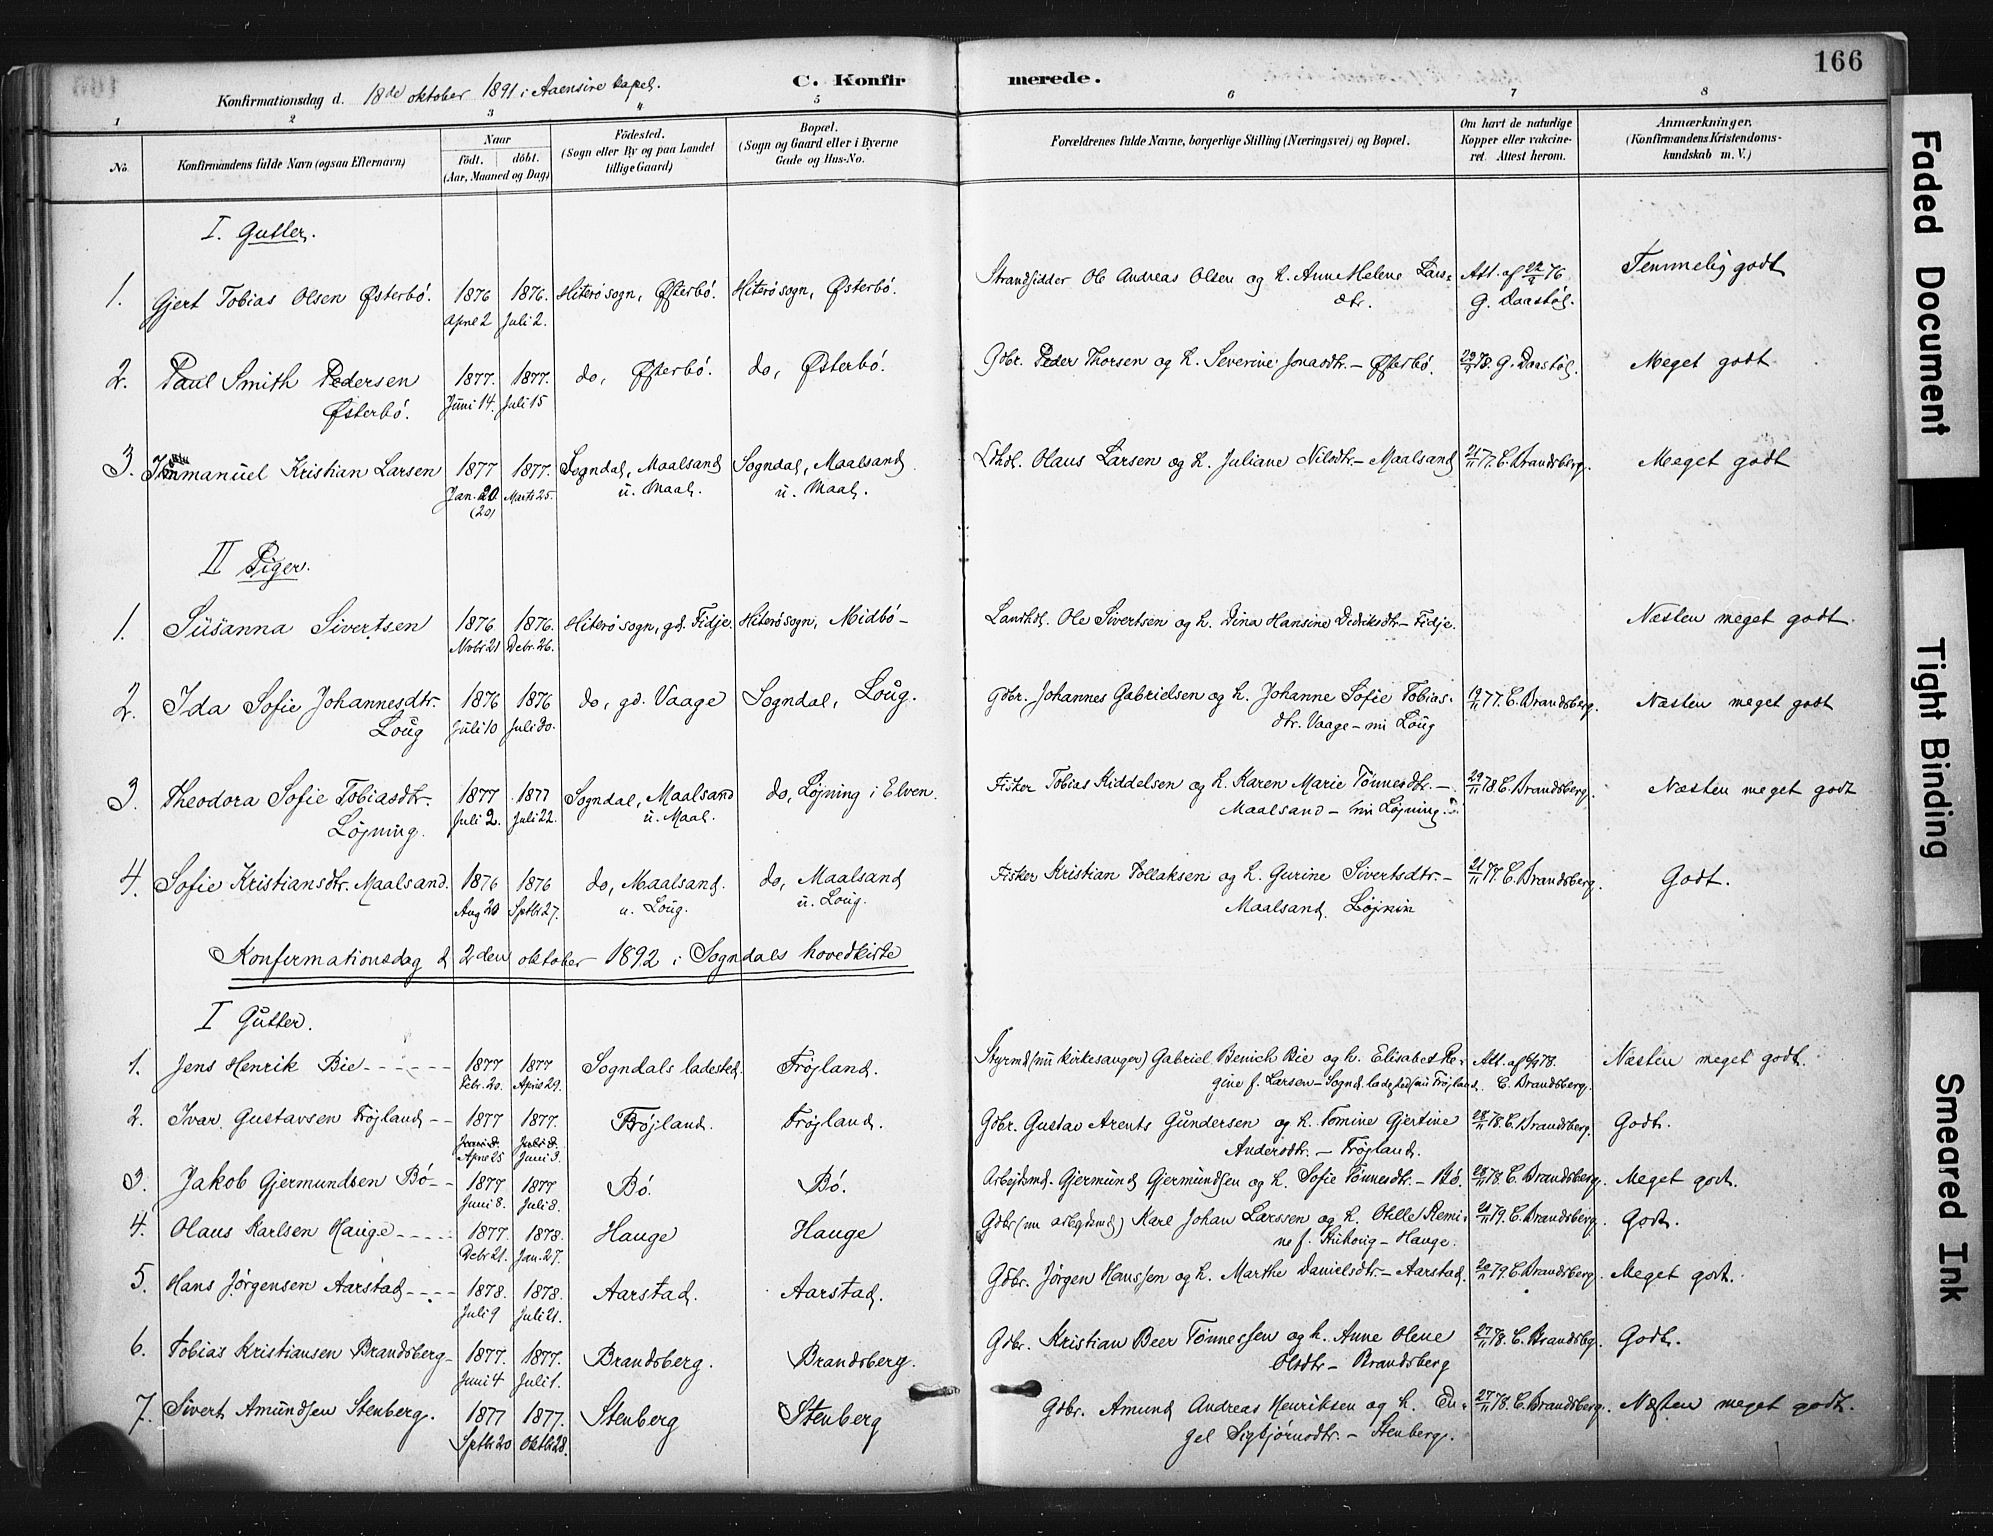 166
Konfirmationsdag d. 18de oktober 1891 i Aaensire kapel.
C. Konfirmerede.
1 2 3 4 5 6 7 8
No.
Konfirmandens fulde Navn (ogsaa Efternavn)
Naar
födt. döbt.
(Aar, Maaned og Dag)
Födested.
(Sogn eller By og paa Landet
tillige Gaard)
Bopæl.
(Sogn og Gaard eller i Byerne
Gade og Hus-No.
Forældrenes fulde Navne, borgerlige Stilling (Næringsvei) og Bopæl.
Om havt de naturlige
Kopper eller vakcine-
ret. Attest herom.
Anmærkninger.
(Konfirmandens Kristendoms-
kundskab m. V.)
I. Gutter.
1. Gjert Tobias Olsen Østerbö. 1876 1876. Hiterö sogn, Østerbö. Hiterö sogn, Østerbö. Strandsidder Ole Andreas Olsen og h. Anne Helene Lars- Att. af 22/9 76 Temmelig godt
April 2 Juli 2. dtr. G. Daastöl.
2. Paul Smith Pedersen 1877. 1877. do, Østerbö. do, Østerbö. Gdbr. Peder Thorsen og h. Severine Jonasdtr. – Østerbö. G. Daastöl. Meget godt
Østerbö. Juni 14. Juli 15
3. Immanuel Kristian Larsen 1877 1877. Sogndal, Maalsand Sogndal, Maalsand Olaus Larsen og h. Juliane Nilsdtr. – Maalsand 21/11 77. C. Brandsberg. Meget godt
Jan. 20 Marts 25. u. Maal. u. Maal.
(20)
II Piger.
1. Susanna Sivertsen 1876 1876. Hiterö sogn, gd. Fidje. Hiterö sogn, Midbö – Ole Sivertsen og h. Dina Hansine Didriksdtr – Fidje. Næsten meget godt.
Novbr 21 Debr. 26.
2. Ida Sofie Johannesdtr. 1876 1876 do, gd. Vaage Sogndal, Loug. Gdbr. Johannes Gabrielsen og h. Johanne Sofie Tobias- 19/11 77. C. Brandsberg. Næsten meget godt
Loug Juli 10 Juli 30. dtr. Vaage – nu Loug
3. Theodora Sofie Tobiasdtr. 1877 1877 Sogndal, Maalsand do, Løjning i Elven. Fisker Tobias Kiddelsen og h. Karen Marie Tönnesdtr. – 29/11 78. C. Brandsberg. Næsten meget godt
Löjning. Juli 2. Juli 22. u. Maal. Maalsand – nu Löjning.
4. Sofie Kristiansdtr. Maalsand. 1876 1876 do, Maalsand. do, Maalsand Fisker Kristian Tollaksen og h. Gurine Sivertsdtr. – 21/11 77. C. Brandsberg. Godt.
Aug 20 Sptbr 27. u. Loug. u. Loug. Maalsand. Löjnin
Konfirmationsdag d 2den oktober 1892 i Sogndals hovedkirke
I Gutter.
1. Jens Henrik Bie 1877 1877 Sogndals ladested. Fröjland. Styrmd (nu kirkesanger) Gabriel Benich Bie og h. Elisabet Re- Att. af 78. Næsten meget godt.
Febr. 20. April 29. gine f. Larsen – Sognd. ladested (nu Fröjland. C. Brandsberg.
2. Ivar Gustavsen Fröjland 1877 1877. Fröjland. Fröjland. Gdbr. Gustav Arents Gundersen og h. Tomine Gjertine 28/11 78. C. Brandsberg. Godt.
Juni 8. Juli 8.
April 25 Juni 3. Andersdtr. – Fröjland.
3. Jakob Gjermundsen Bö 1877 1877 Bö. Bö. Arbejdsmd. Gjermund Gjermundsen og h. Sofie Tönnesdtr. – Bö. 28/11 78. C. Brandsberg. Meget godt.
Juni 8. Juli 8.
4. Olaus Karlsen Hauge 1877. 1878. Hauge Hauge Gdbr (nu arbejdsmd) Karl Johan Larssen og h. Otille Remi- 21/11 79. C. Brandsberg. Godt.
Debr 21. Jan. 27. ne f. – Hauge.
5. Hans Jörgensen Aarstad 1878. 1878. Aarstad. Aarstad. Gdbr. Jörgen Hanssen og h. Marthe Danielsdtr. – Aarstad. 20/11 79. C. Brandsberg. Meget godt.
Juli 9 Juli 21.
6. Tobias Kristiansen Brandsberg 1877. 1877. Brandsberg. Brandsberg. Gdbr. Kristian Beer Tönnessen og h. Anne Olene 27/11 78. C. Brandsbg. Godt.
Juni 4 Juli 1. Olsdtr – Brandsberg
7. Sivert Amundsen Stenberg. 1877 1877. Stenberg Stenberg Gdbr. Amund Andreas Henriksen og h. En- 27/11 78. C. Brandsberg. Næsten meget godt.
Sptbr 20 Oktbr 28. gel Sigbjörnsdtr. – Stenberg.
Faded Document
Tight Binding
Smeared Ink